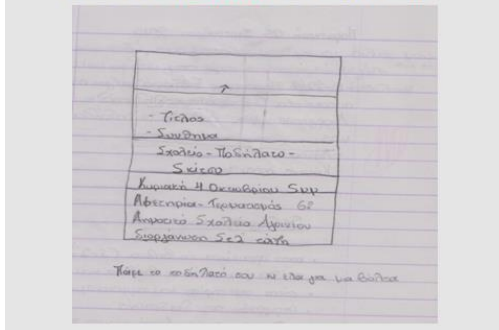 - Τίτλος
- Σύνθημα
Σχολείο - Ποδήλατο -
Σκίτσο
Κυριακή 4 Οκτωβρίου 5μμ
Αφετηρία - Τερματισμός 6ο
Δημοτικό Σχολείο Αγρινίου
Διοργάνωση
Πάρε το ποδήλατό σου κι έλα για μια βόλτα